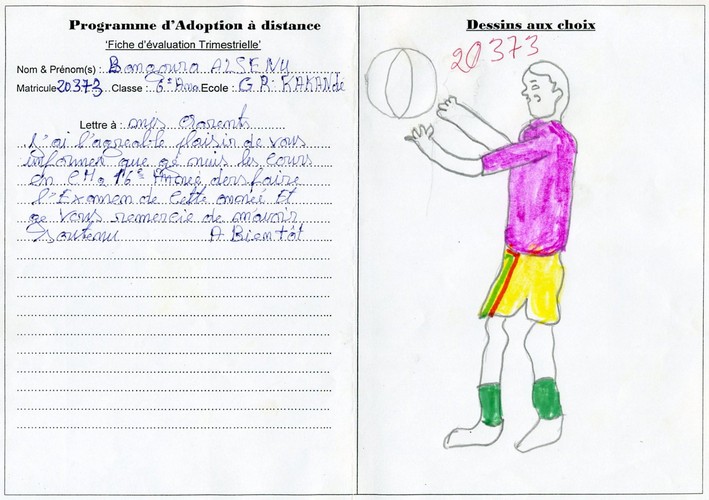 Programme d'Adoption à distance
'Fiche d'évaluation Trimestrielle'
Nom & Prénom(s) : Bangoura ALSENY
Matricule 20373 Classe : 6e Ann. Ecole : G. P. KAKANDe
Lettre à : mes parents
J'ai l'agreable plaisir de vous
informer que je suis les cours
en CM2 6e Année
l'Examen de cette année Et
je vous remercie de m'avoir
Soutenu A Bientôt
Dessins aux choix
20373